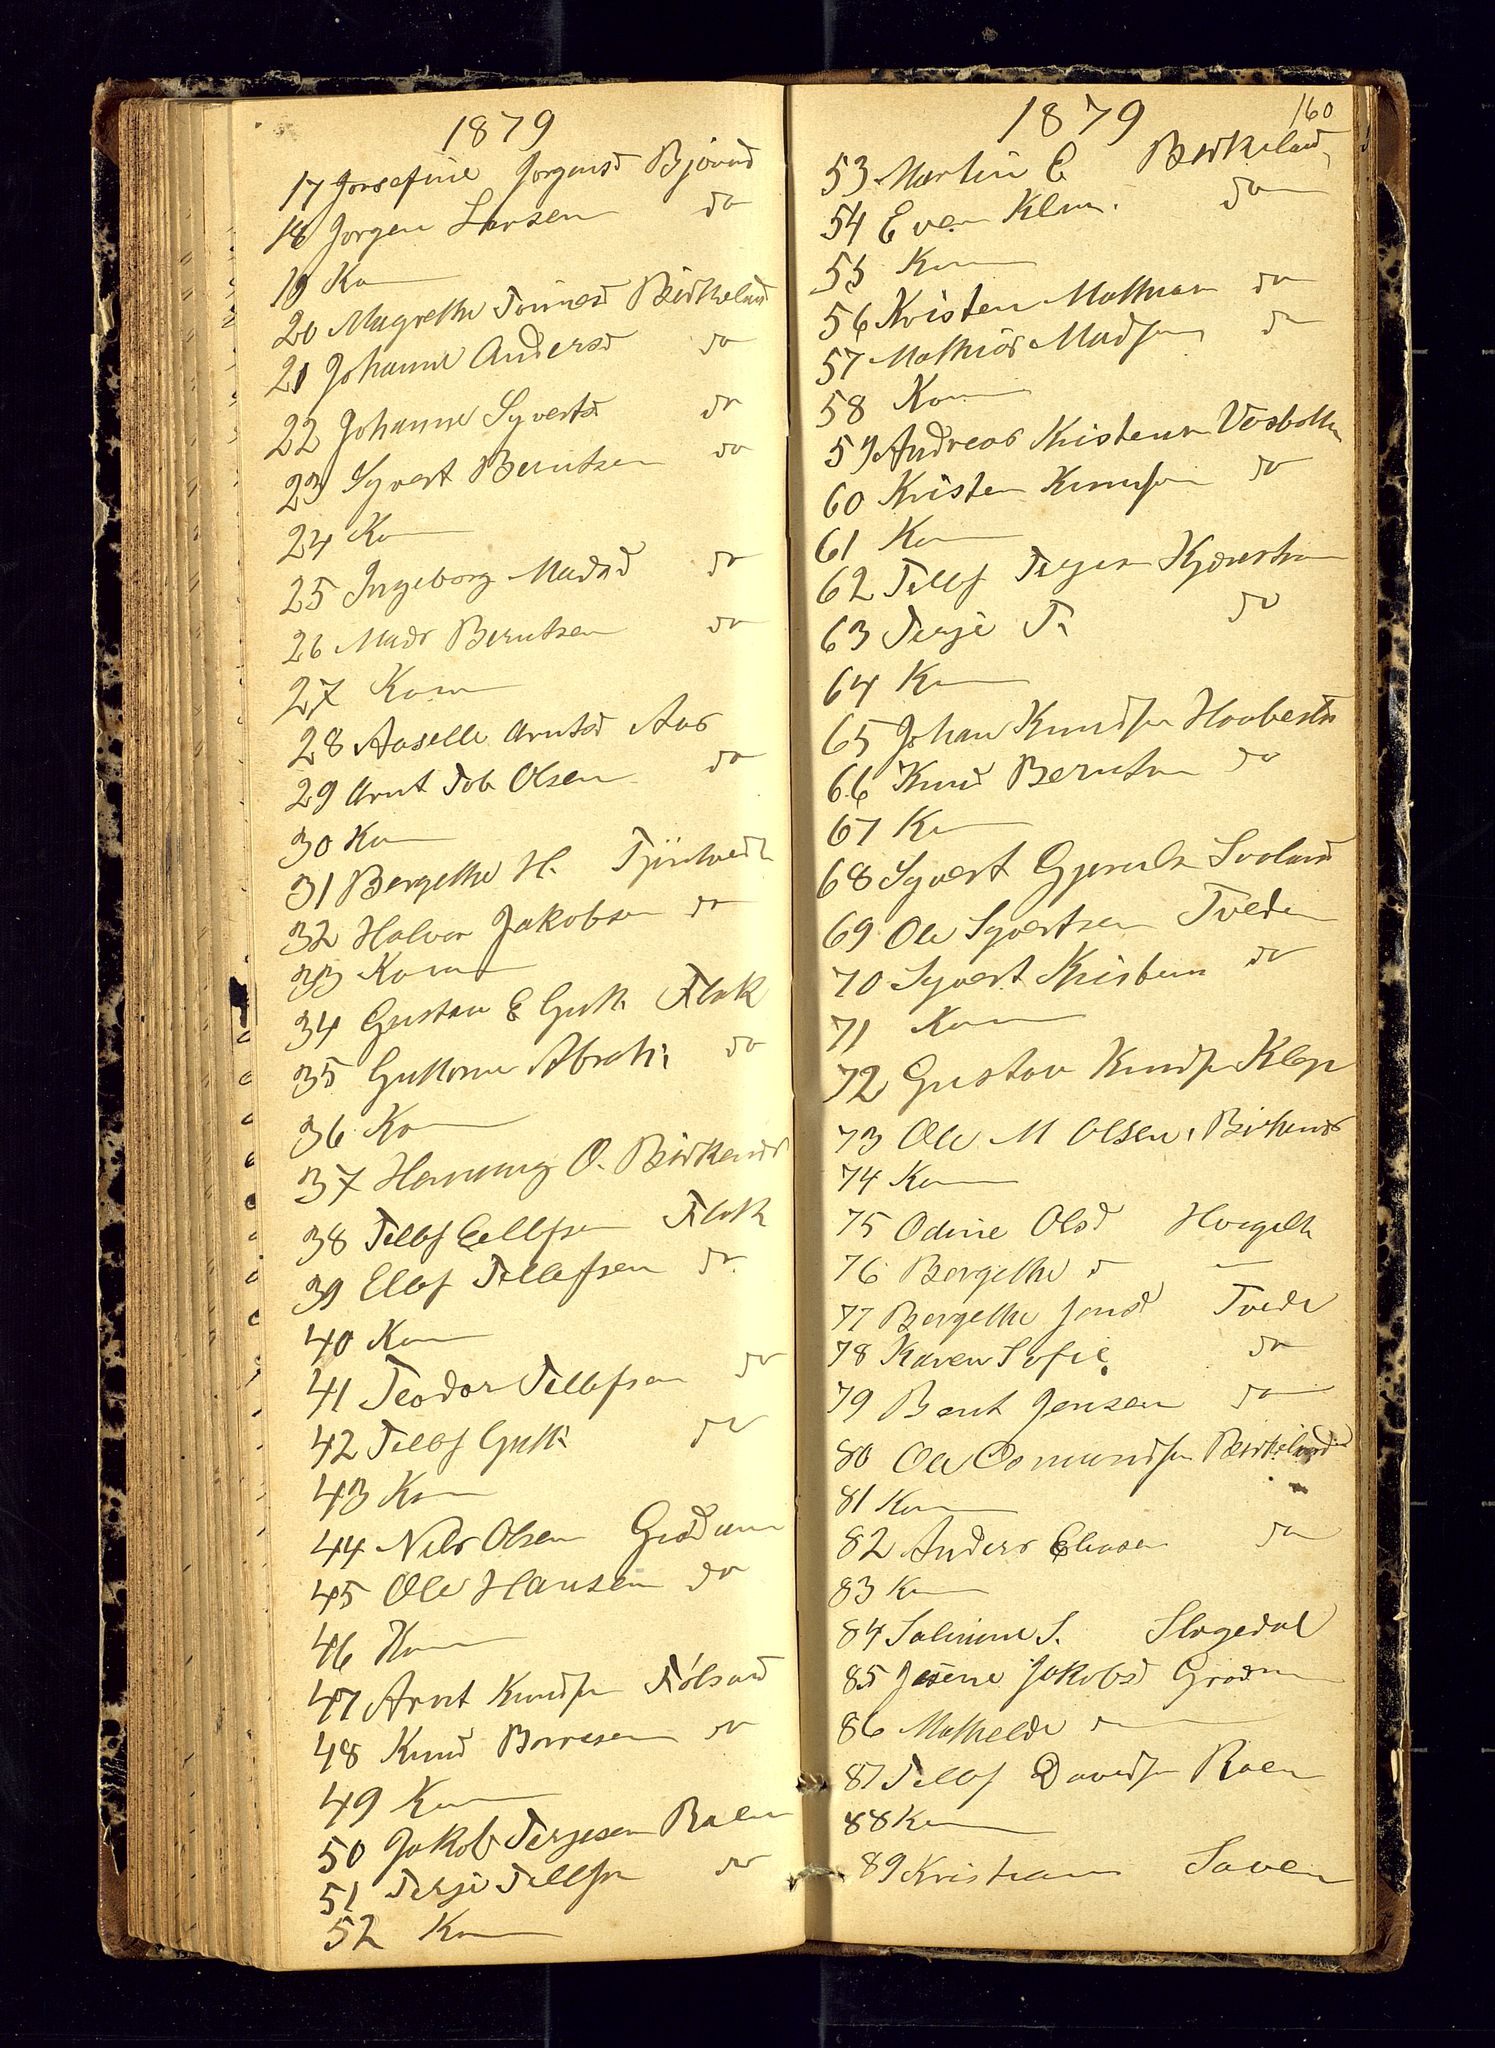 1879
17 Josefine Jørgensd Bjøvnd
18 Jørgen Larsen do
19 Ko
20 Magrethe Tønnesd Birkeland
21 Johanne Andersd do
22 Johanne Syvertsd do
23 Syvert Berntsen do
24 Ko
25 Ingeborg Madsd do
26 Mads Berntsen do
27 Kone
28 Aaselle Arntsd Aas
29 Arnt Tob Olsen do
30 Ko
31 Bergethe H. Tjintvedt
32 Halvor Jakobsen do
33 Kone
34 Gustav E Gutt. Flak
35 Guttorm Abrah: do
36 Ko
37 Henning O. Birkenes
38 Tellef Ellefsen Flak
39 Ellef Tellefsen do
40 Kon
41 Teodor Tellefsen do
42 Tellef Gutt: do
43 Kon
44 Nils Olsen Grødum
45 Ole Hansen do
46 Kon
47 Arnt Knudsen Fidsland
48 Knud Børresen do
49 Kon
50 Jakob Terjesen Rosen
51 Terje Tellefsen do
52 Kon
1879 160
53 Martin E Birkeland
54 Even Klem. do
55 Kon
56 Kristen Mathias do
57 Mathias Madsen do
58 Kon
59 Andreas Kristensn Vasbotten
60 Kristen Knudsen do
61 Kon
62 Tellef Terjesen Kjærestrøm
63 Terje T. do
64 Kon
65 Johan Knudsen Haabesto
66 Knud Berntsen do
67 Kon
68 Syvert Gjeruls Svaland
69 Ole Syvertsen Tveden
70 Syvert Kristens do
71 Kon
72 Gustav Knudsen Klep
73 Ole M Olsen. Birkenes
74 Kon
75 Odine Olsd Høegilt
76 Bergethe d —
77 Bergethe Jensd Tvede
78 Karen Sofie do
79 Bent Jensen do
80 Ole Osmundsen Birkeland
81 Kon
82 Anders Eliasen do
83 Kon
84 Salmine S. Slogedal
85 Josene Jakobsd Grødum
86 Mathelde —
87 Tellef Davidsen Rosen
88 Kon
89 Kristian Saven